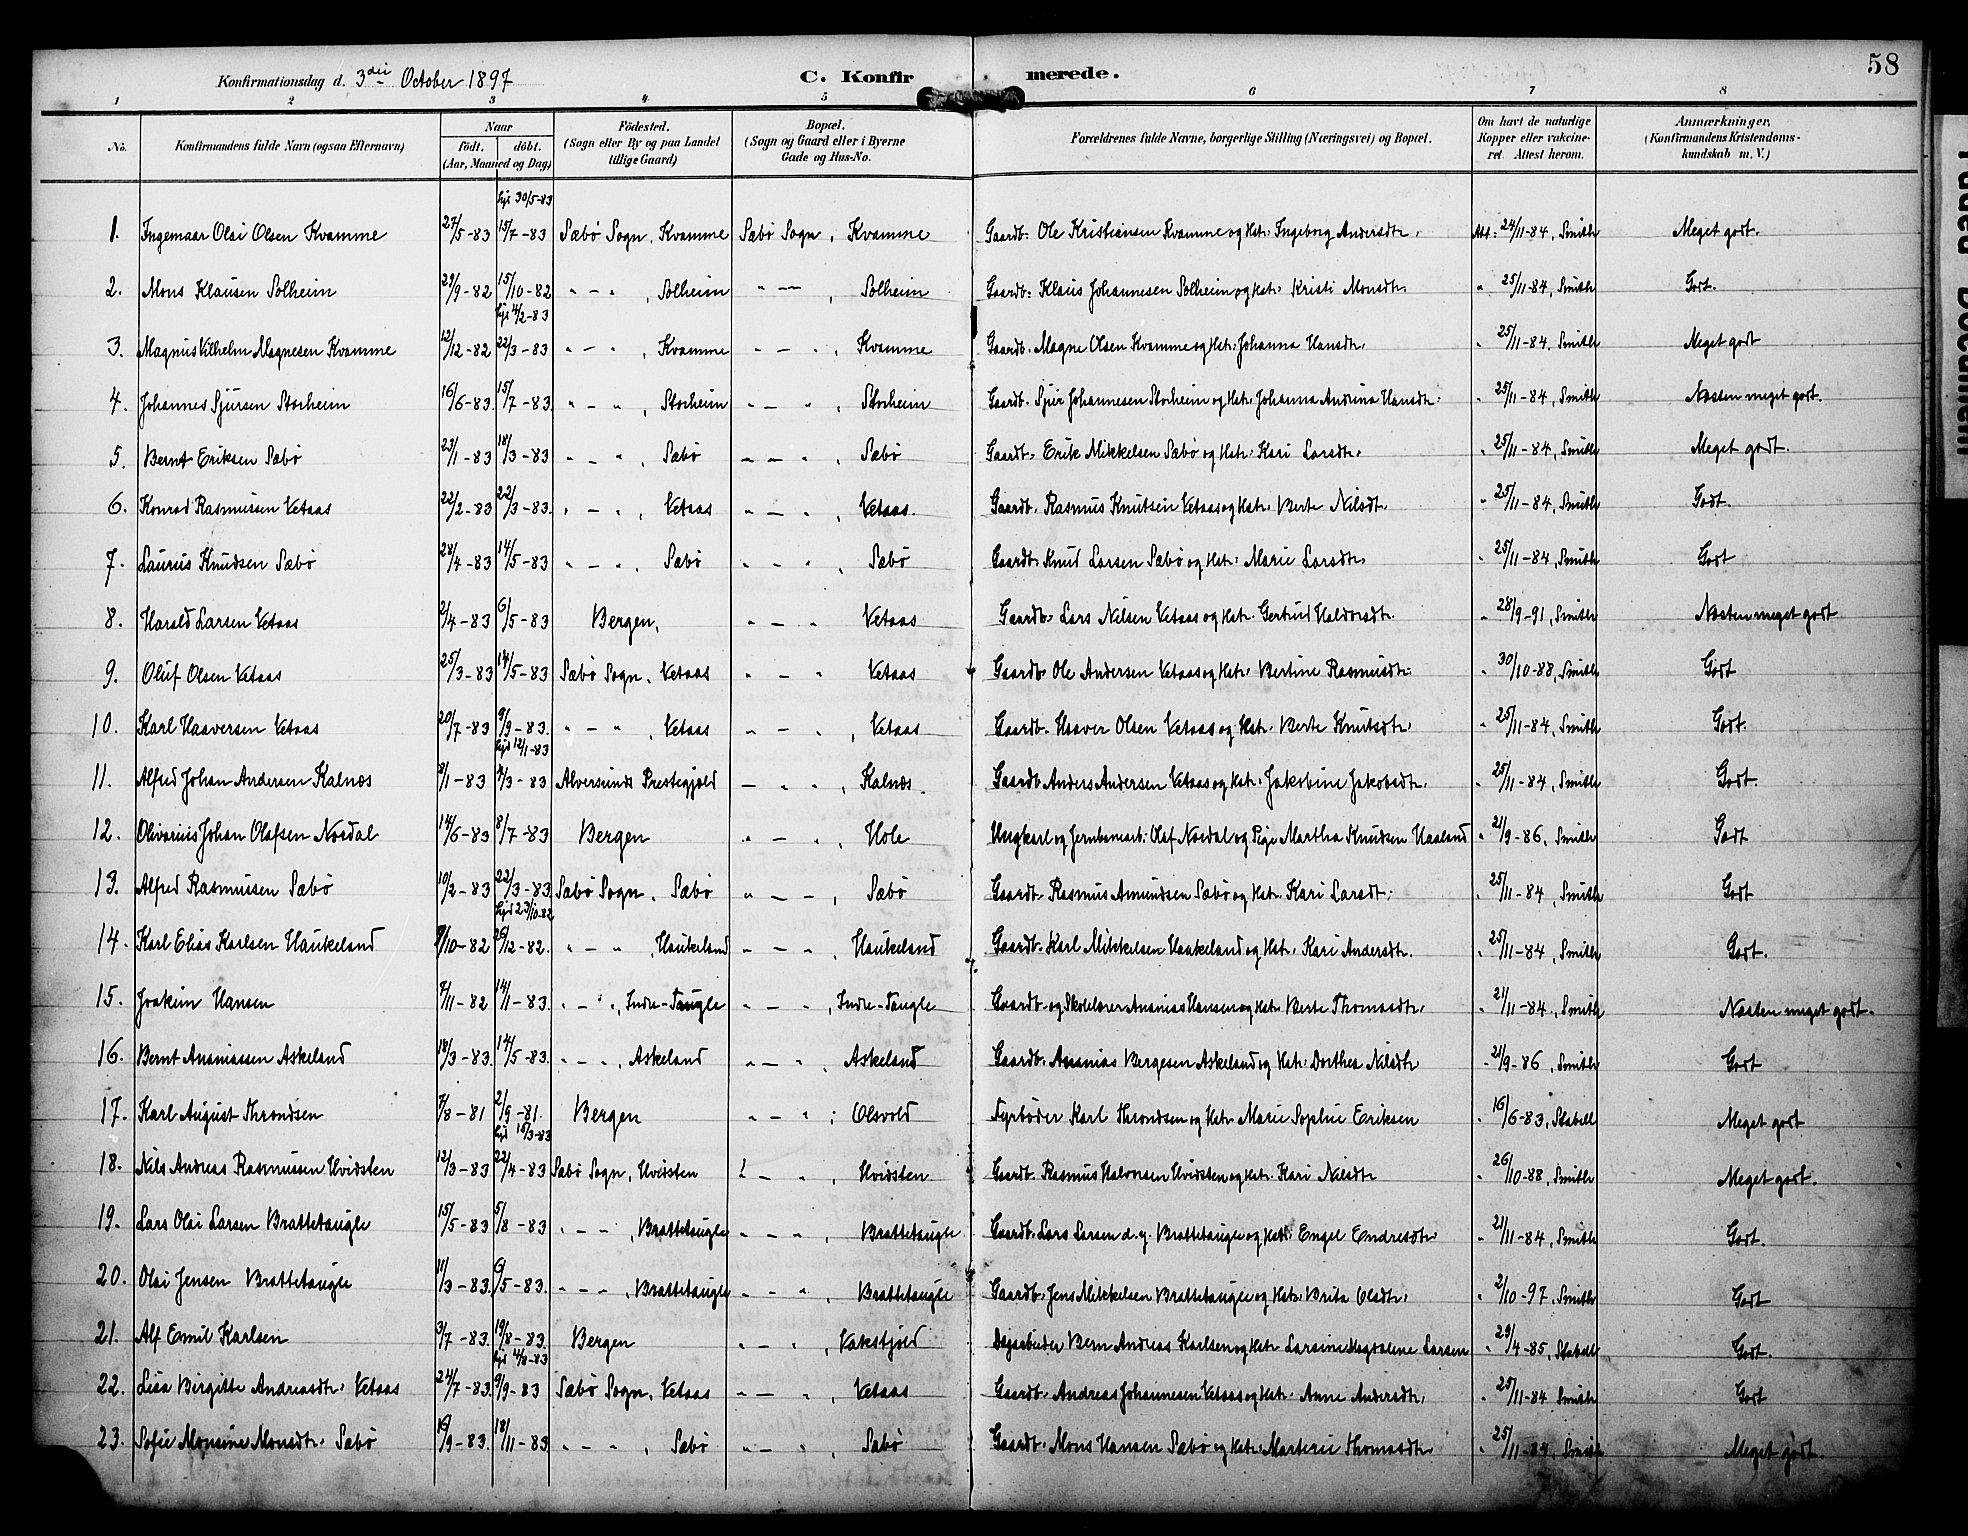 58
Konfirmationsdag d. 3die October 1897
C. Konfirmerede.
1 2 3 4 5 6 7 8
No. Konfirmandens fulde Navn (ogsaa Efternavn) Naar födt. döbt. (Aar, Maaned og Dag) Födested. (Sogn eller By og paa Landet tillige Gaard) Bopæl. (Sogn og Gaard eller i Byerne Gade og Hus-No. Forældrenes fulde Navne, borgerlige Stilling (Næringsvei) og Bopæl. Om havt de naturlige Kopper eller vakcineret. Attest herom. Anmærkninger. (Konfirmandens Kristendomskundskab m. V.)
hjd 30/5-83
1. Ingemaar Olai Olsen Kvamme 27/5-83 15/7-83 Sæbö Sogn, Kvamme Sæbö Sogn, Kvamme Gaardb. Ole Kristiansen Kvamme og Hstr. Ingeborg Andersdtr. Att. 24/11-84, Smith Meget godt.
2. Mons Klausen Solheim 29/9-82 15/10-82 " - " , Solheim " - , Solheim Gaardb. Klaus Johannesen Solheim og Hstr. Kristi Monsdtr. " 25/11-84, Smith Godt.
hjd 4/2-83
3. Magnus Vilhelm Magnesen Kvamme 12/12-82 22/3-83 " - " , Kvamme " - " , Kvamme Gaardb. Magne Olsen Kvamme og Hstr. Johanna Hansdtr. " 25/11-84. Smith Meget godt
4. Johannes Sjursen Storheim 16/6-83. 15/7-83. " - " , Storheim " - " , Storheim Gaardb. Sjur Johannesen Storheim og Hstr. Johanna Andrina Hansdtr. " 25/11-84, Smith Næsten meget godt.
5. Bernt Eriksen Sæbö 23/1-83 18/3-83 " - " , Sæbö " - " , Sæbö Gaardb. Erik Mikkelsen Sæbö og Hstr. Kari Larsdtr. " 25/11-84, Smith Meget godt.
6. Konrad Rasmussen Vetaas 22/2-83 22/3-83. " - " , Vetaas " - " , Vetaas. Gaardb. Rasmus Knutsen Vetaas og Hstr. Berte Nilsdtr. " 25/11-84, Smith Godt.
7. Laurus Knudsen Sæbö 28/4-83 14/5-83 " - " , Sæbö " - " , Sæbö Gaardb. Knud Larsen Sæbö og Hstr. Marie Larsdtr. " 25/11-84, Smith Godt
8. Harald Larsen Vetaas 2/4-83 6/5-83 Bergen, " - " Vetaas Gaardb. Lars Nilsen Vetaas og Hstr. Gertrud Haldorsdtr. " 28/9-91, Smith Næsten meget godt
9. Oluf Olsen Vetaas 25/3-83 14/5-83 Sæbö Sogn, Vetaas " - " Vetaas Gaardb. Ole Andersen Vetaas og Hstr. Bertine Rasmusdtr. " 30/10-88, Smith Godt
10. Karl Haaversen Vetaas 20/7-83 9/9-83. " - " , Vetaas " - " , Vetaas Gaardb. Haaver Olsen Vetaas og Hstr. Berte Knutsdtr. " 25/11-84, Smith Godt.
hjd 12/1-83
11. Alfred Johan Andersen Kalnæs 8/1-83 4/3-83 Alversunds Prestegjeld - " " , Kalnæs. Gaardb Anders Andersen Vetaas og Hstr. Jakobine Jakobsdtr. " 25/11-84, Smith Godt.
12. Olivarius Johan Olafsen Nosdal 14/6-83 8/7-83 Bergen " - " , Hole Ungkarl og Jernbanearb. Olaf Nosdal og Pige Martha Knudsen Haaland " 21/9-86, Smith Godt
13. Alfred Rasmussen Sæbö 10/2-83 22/3-83. Sæbö Sogn, Sæbö " - - , Sæbö Gaardb. Rasmus Amundsen Sæbö og Hstr. Kari Larsdt. " 25/11-84, Smith Godt
hjd 23/10-82
14. Karl Elias Karlsen Haukeland 9/10-82 26/12-82. " - " , Haukeland " - " , Haukeland Gaardb. Karl Mikkelsen Haukeland og Hstr. Kari Andersdtr. " 25/11-84, Smith Godt.
15. Joakim Hansen 7/11-82 14/1-83. " - " , Indre-Taugle " - " , Indre-Taugle Gaardb. og Skolelærer Ananias Hansen og Hstr. Berte Thomasdtr. " 21/11-84, Smith Næsten meget godt.
16. Bernt Ananiassen Askeland 18/3-83. 14/5-83. " - " , Askeland " - " Askeland Gaardb. Ananias Bergesen Askeland og Hstr. Dorthea Nilsdtr " 21/9-86, Smith Godt
17. Karl August Throndsen 7/8-81 2/9-81. Bergen " - " , Olsvold Fyrböder Karl Throndsen og Hstr Marie Sophie Eriksen " 16/6-83, Stabell Meget godt
hjd 15/3-83
18. Nils Andreas Rasmussen Hvidsten 12/3-83 22/4-83 Sæbö Sogn, Hvidsten " - " , Hvidsten Gaardb. Rasmus Halvorsen Hvidsten og Hstr. Kari Nilsdtr " 26/10-88, Smith Meget godt.
19. Lars Olai Larsen Brattetaugle 15/5-83 5/8-83 " - " , Brattetaugle " - " , Brattetaugle Gaardb. Lars Larsen d. y. Brattetaugle og Hstr. Engel Endresdtr. " 21/11-84, Smith Godt.
20. Olai Jensen Brattetaugle 11/3-83. 6/5-83. " - " , Brattetaugle " - " , Brattetaugle Gaardb. Jens Mikkelsen Brattetaugle og Hstr. Brita Olsdtr. " 2/10-97, Smith Godt
21. Alf Emil Karlsen 3/7-83. 19/8-83. Bergen " - " , Vakstjeld Dagarbeider Bern Andreas Karlsen og Hstr Larsine Magdalene Larsen " 29/4-85, Stabell Godt.
hjd 4/8-83
22. Lisa Birgitte Andreasdtr. Vetaas 24/7-83. 9/9-83 Sæbö Sogn, Vetaas " - " , Vetaas Gaardb. Andreas Johannesen Vetaas og Hstr. Anne Andersdtr. " 25/11-84 Smith Godt
23. Sofie Monsine Monsdtr. Sæbö 16/9-83. 18/11-83 " - " , Sæbö " - " , Sæbö Gaardb. Mons Hansen Sæbö og Hstr. Marterie Thomasdtr. " 25/11-84, Smith Meget godt.